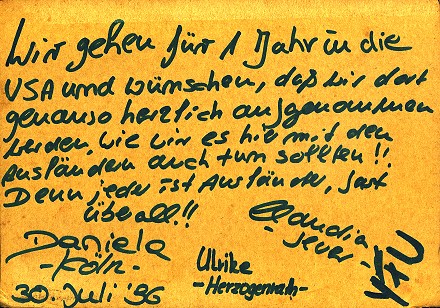 Wir gehen für 1 Jahr in die
USA und wünschen, daß wir dort
genauso herzlich aufgenommen
werden, wie wir es hier mit den
Ausländern auch tun sollten!!
Denn jeder ist Ausländer, fast
überall!!
Claudia
- Jever -
Daniela
- Köln -
Ulrike
- Herzogenrath -
30. Juli '96